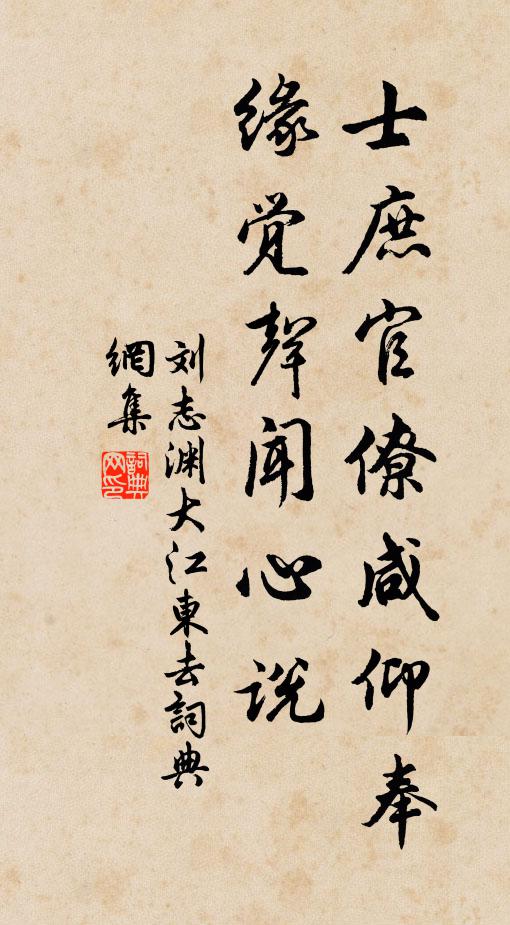 士庶官僚咸仰奉
缘觉聲聞心说
刘志渊大江東去詞典
網集
詞典网印